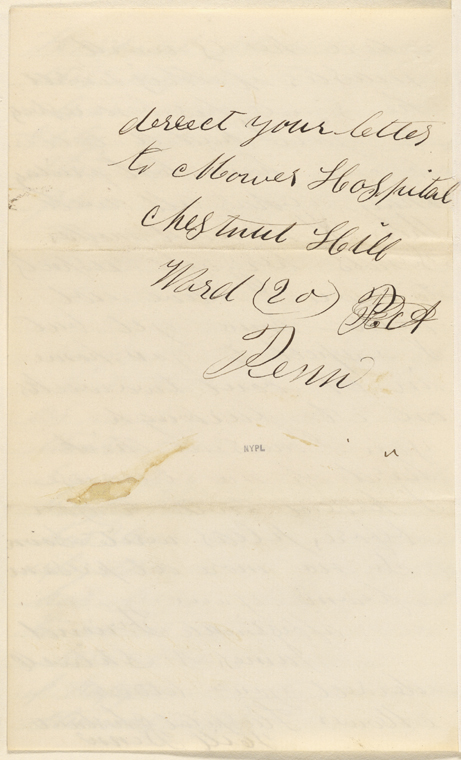 dereect your letter
to Mower Hospital
Chestnut Hill
Ward (20)
Penn
NYPL